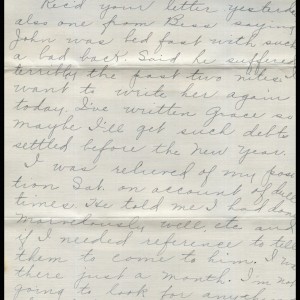 Rec'd your letter yesterday
also one from Bess saying
John was bed fast with such
a bad back. Said he suffered
terribly the past two nites. I
want to write her again
today. I've written Grace so
maybe I'll get such debts
settled before the New Year.
I was relieved of my posi
tion Sat. on account of dull
times. He told me I had done
marvelously well, etc and
if I needed reference to tell
them to come to him. I was
there just a month. I'm not
going to look for